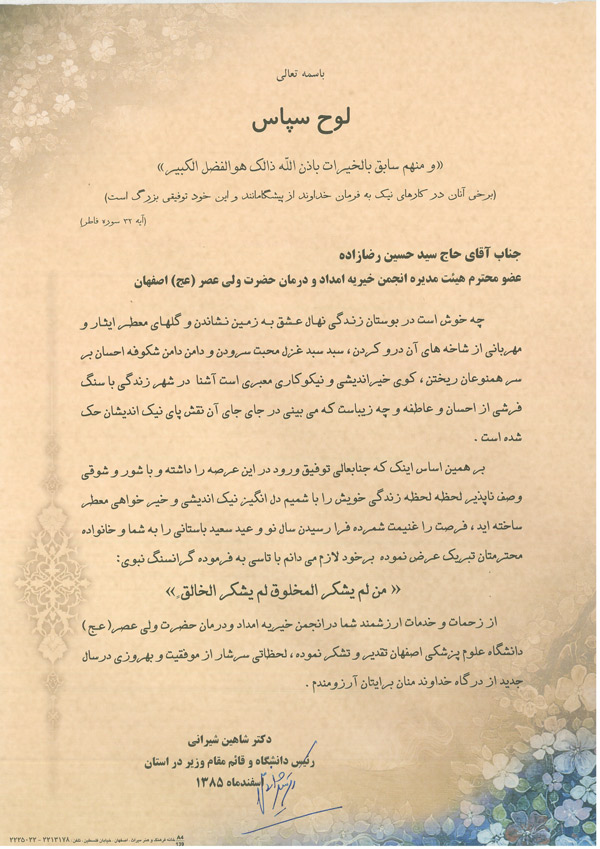 باسمه تعالی
لوح سپاس
«و منهم سابق بالخیرات باذن الله ذالک هوالفضل الکبیر»
(برخی آنان در کارهای نیک به فرمان خداوند از پیشگامانند و این خود توفیقی بزرگ است)
(آیه ۳۲ سوره فاطر)
جناب آقای حاج سید حسین رضازاده
عضو محترم هیئت مدیره انجمن خیریه امداد و درمان حضرت ولی عصر (عج) اصفهان
چه خوش است در بوستان زندگی نهال عشق به زمین نشاندن و گلهای معطر ایثار و
مهربانی از شاخه های آن درو کردن ، سبد سبد غزل محبت سرودن و دامن دامن شکوفه احسان بر
سر همنوعان ریختن ، کوی خیراندیشی و نیکوکاری معبری است آشنا در شهر زندگی با سنگ
فرشی از احسان و عاطفه و چه زیباست که می بینی در جای جای آن نقش پای نیک اندیشان حک
شده است .
بر همین اساس اینک که جنابعالی توفیق ورود در این عرصه را داشته و با شور و شوقی
وصف ناپذیر لحظه لحظه زندگی خویش را با شمیم دل انگیز نیک اندیشی و خیر خواهی معطر
ساخته اید ، فرصت را غنیمت شمرده فرا رسیدن سال نو و عید سعید باستانی را به شما و خانواده
محترمتان تبریک عرض نموده برخود لازم می دانم با تاسی به فرموده گرانسنگ نبوی:
« من لم یشکر المخلوق لم یشکر الخالق »
از زحمات و خدمات ارزشمند شما درانجمن خیریه امداد ودرمان حضرت ولی عصر(عج)
دانشگاه علوم پزشکی اصفهان تقدیر و تشکر نموده ، لحظاتی سرشار از موفقیت و بهروزی درسال
جدید از درگاه خداوند منان برایتان آرزومندم .
دکتر شاهین شیرانی
رئیس دانشگاه و قائم مقام وزیر در استان
اسفندماه ۱۳۸۵
A4
خانه فرهنگ و هنر میراث - اصفهان - خیابان فلسطین - تلفن: ۲۲۱۳۱۷۸ - ۲۲۲۵۰۳۳